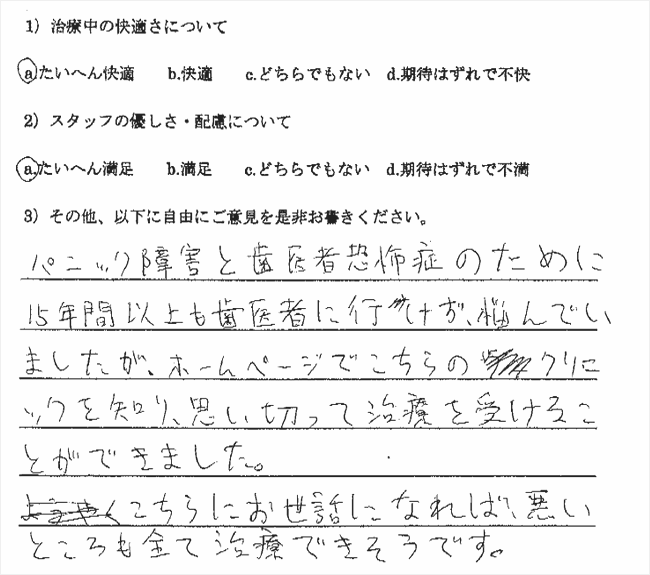 1）治療中の快適さについて
a.たいへん快適　b.快適　c.どちらでもない　d.期待はずれで不快
2）スタッフの優しさ・配慮について
a.たいへん満足　b.満足　c.どちらでもない　d.期待はずれで不満
3）その他、以下に自由にご意見を是非お書きください。
パニック障害と歯医者恐怖症のために
15年間以上も歯医者に行けず、悩んでい
ましたが、ホームページでこちらのクリニ
ックを知り、思い切って治療を受けるこ
とができました。
こちらにお世話になれば、悪い
ところも全て治療できそうです。